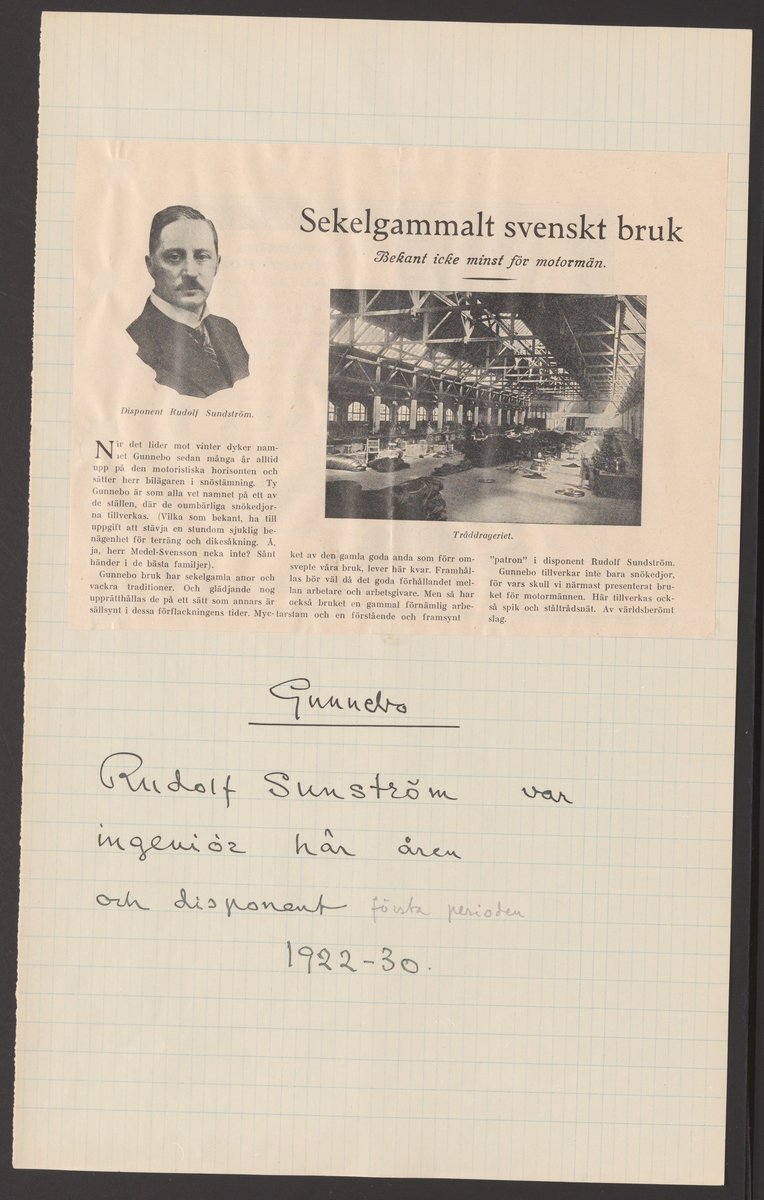 Sekelgammalt svenskt bruk
Bekant icke minst för motormän.
Disponent Rudolf Sundström.
När det lider mot vinter dyker nam-
net Gunnebo sedan många år alltid
upp på den motoristiska horisonten och
sätter herr bilägaren i snöstämning. Ty
Gunnebo är som alla vet namnet på ett av
de ställen, där de oumbärliga snökedjor-
na tillverkas. (Vilka som bekant, ha till
uppgift att stävja en stundom sjuklig be-
nägenhet för terräng och dikesåkning. Å,
ja, herr Medel-Svensson neka inte? Sånt
händer i de bästa familjer).
Gunnebo bruk har sekelgamla anor och
vackra traditioner. Och glädjande nog
upprätthållas de på ett sätt som annars är
sällsynt i dessa förflackningens tider. Myc-
Tråddrageriet.
ket av den gamla goda anda som förr om-
svepte våra bruk, lever här kvar. Framhål-
las bör väl då det goda förhållandet mel-
lan arbetare och arbetsgivare. Men så har
också bruket en gammal förnämlig arbe-
tarstam och en förstående och framsynt
"patron" i disponent Rudolf Sundström.
Gunnebo tillverkar inte bara snökedjor,
för vars skull vi närmast presenterat bru-
ket för motormännen. Här tillverkas ock-
så spik och ståltrådsnät. Av världsberömt
slag.
Gunnebo
Rudolf Sunström var
ingeniör här åren
och disponent första perioden
1922-30.